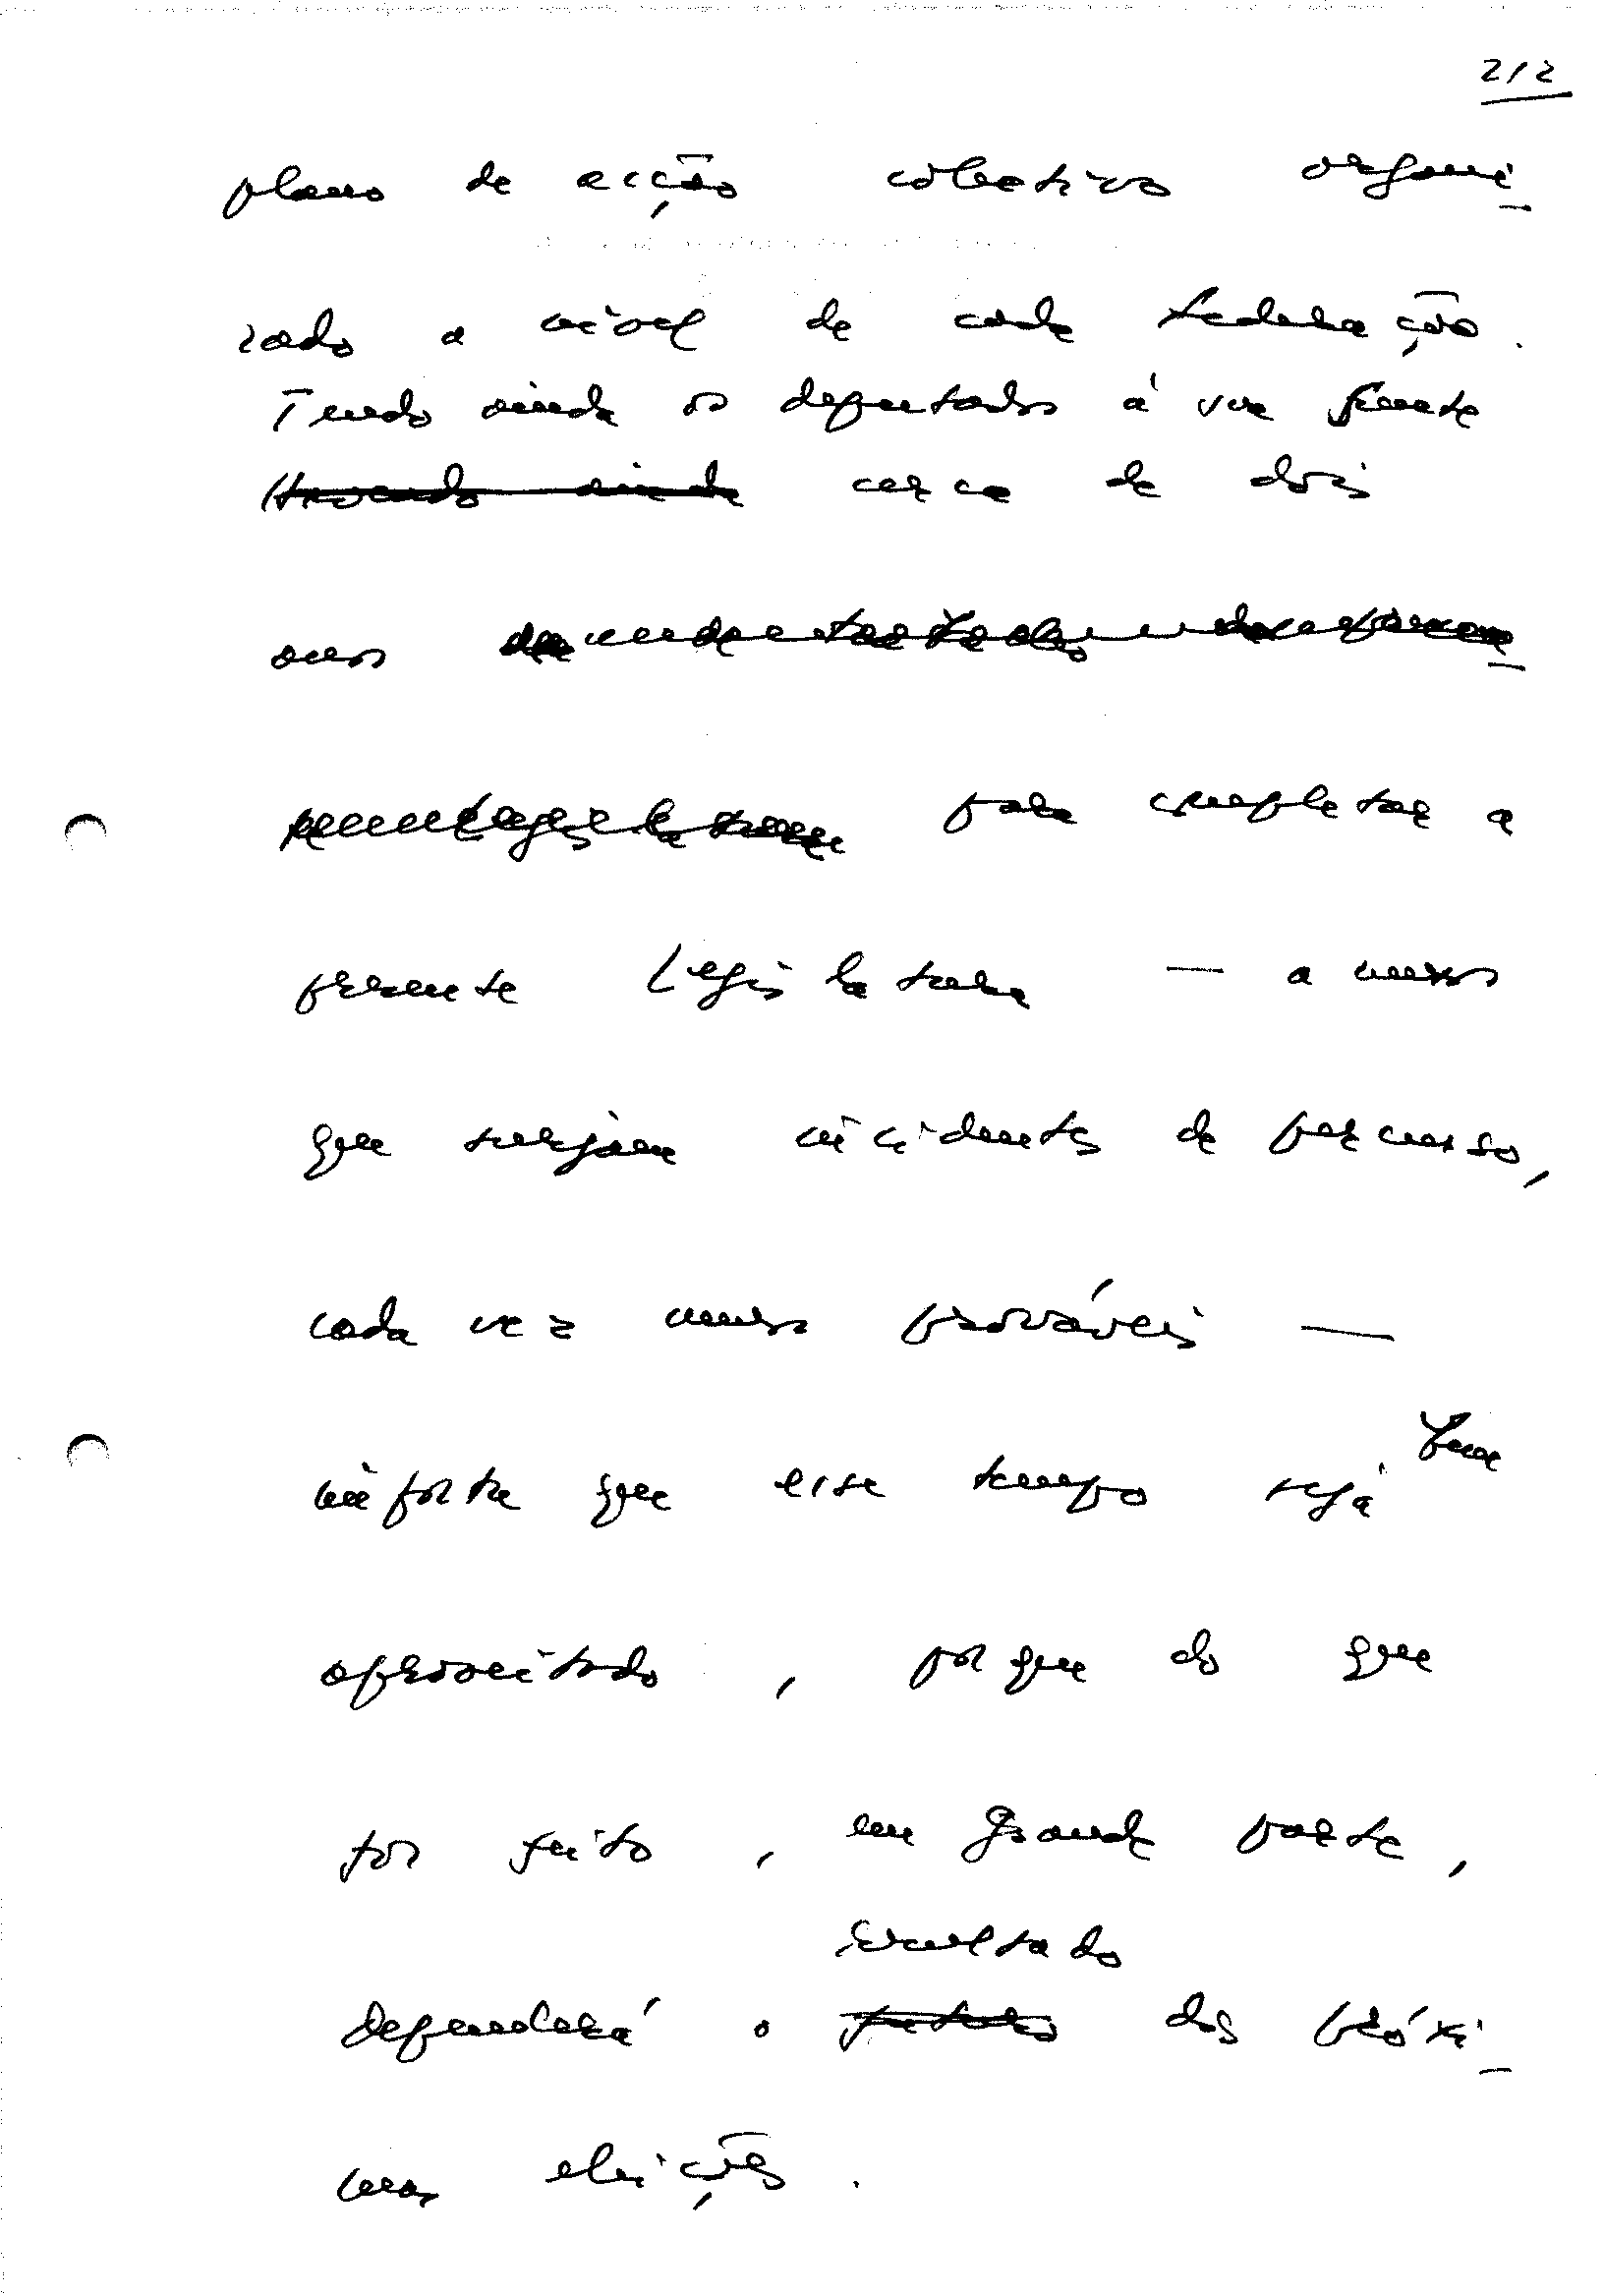 212
plano de acção colectiva organi-
zado a nível de cada Federação.
Tendo ainda os deputados à sua frente
cerca de dois
anos
para completar a
presente Legislatura — a menos
que surjam incidentes de percurso,
cada vez menos prováveis —
importa que esse tempo seja bem
aproveitado, porque do que
for feito, em grande parte,
resultado
dependerá o dos próxi-
mas eleições.